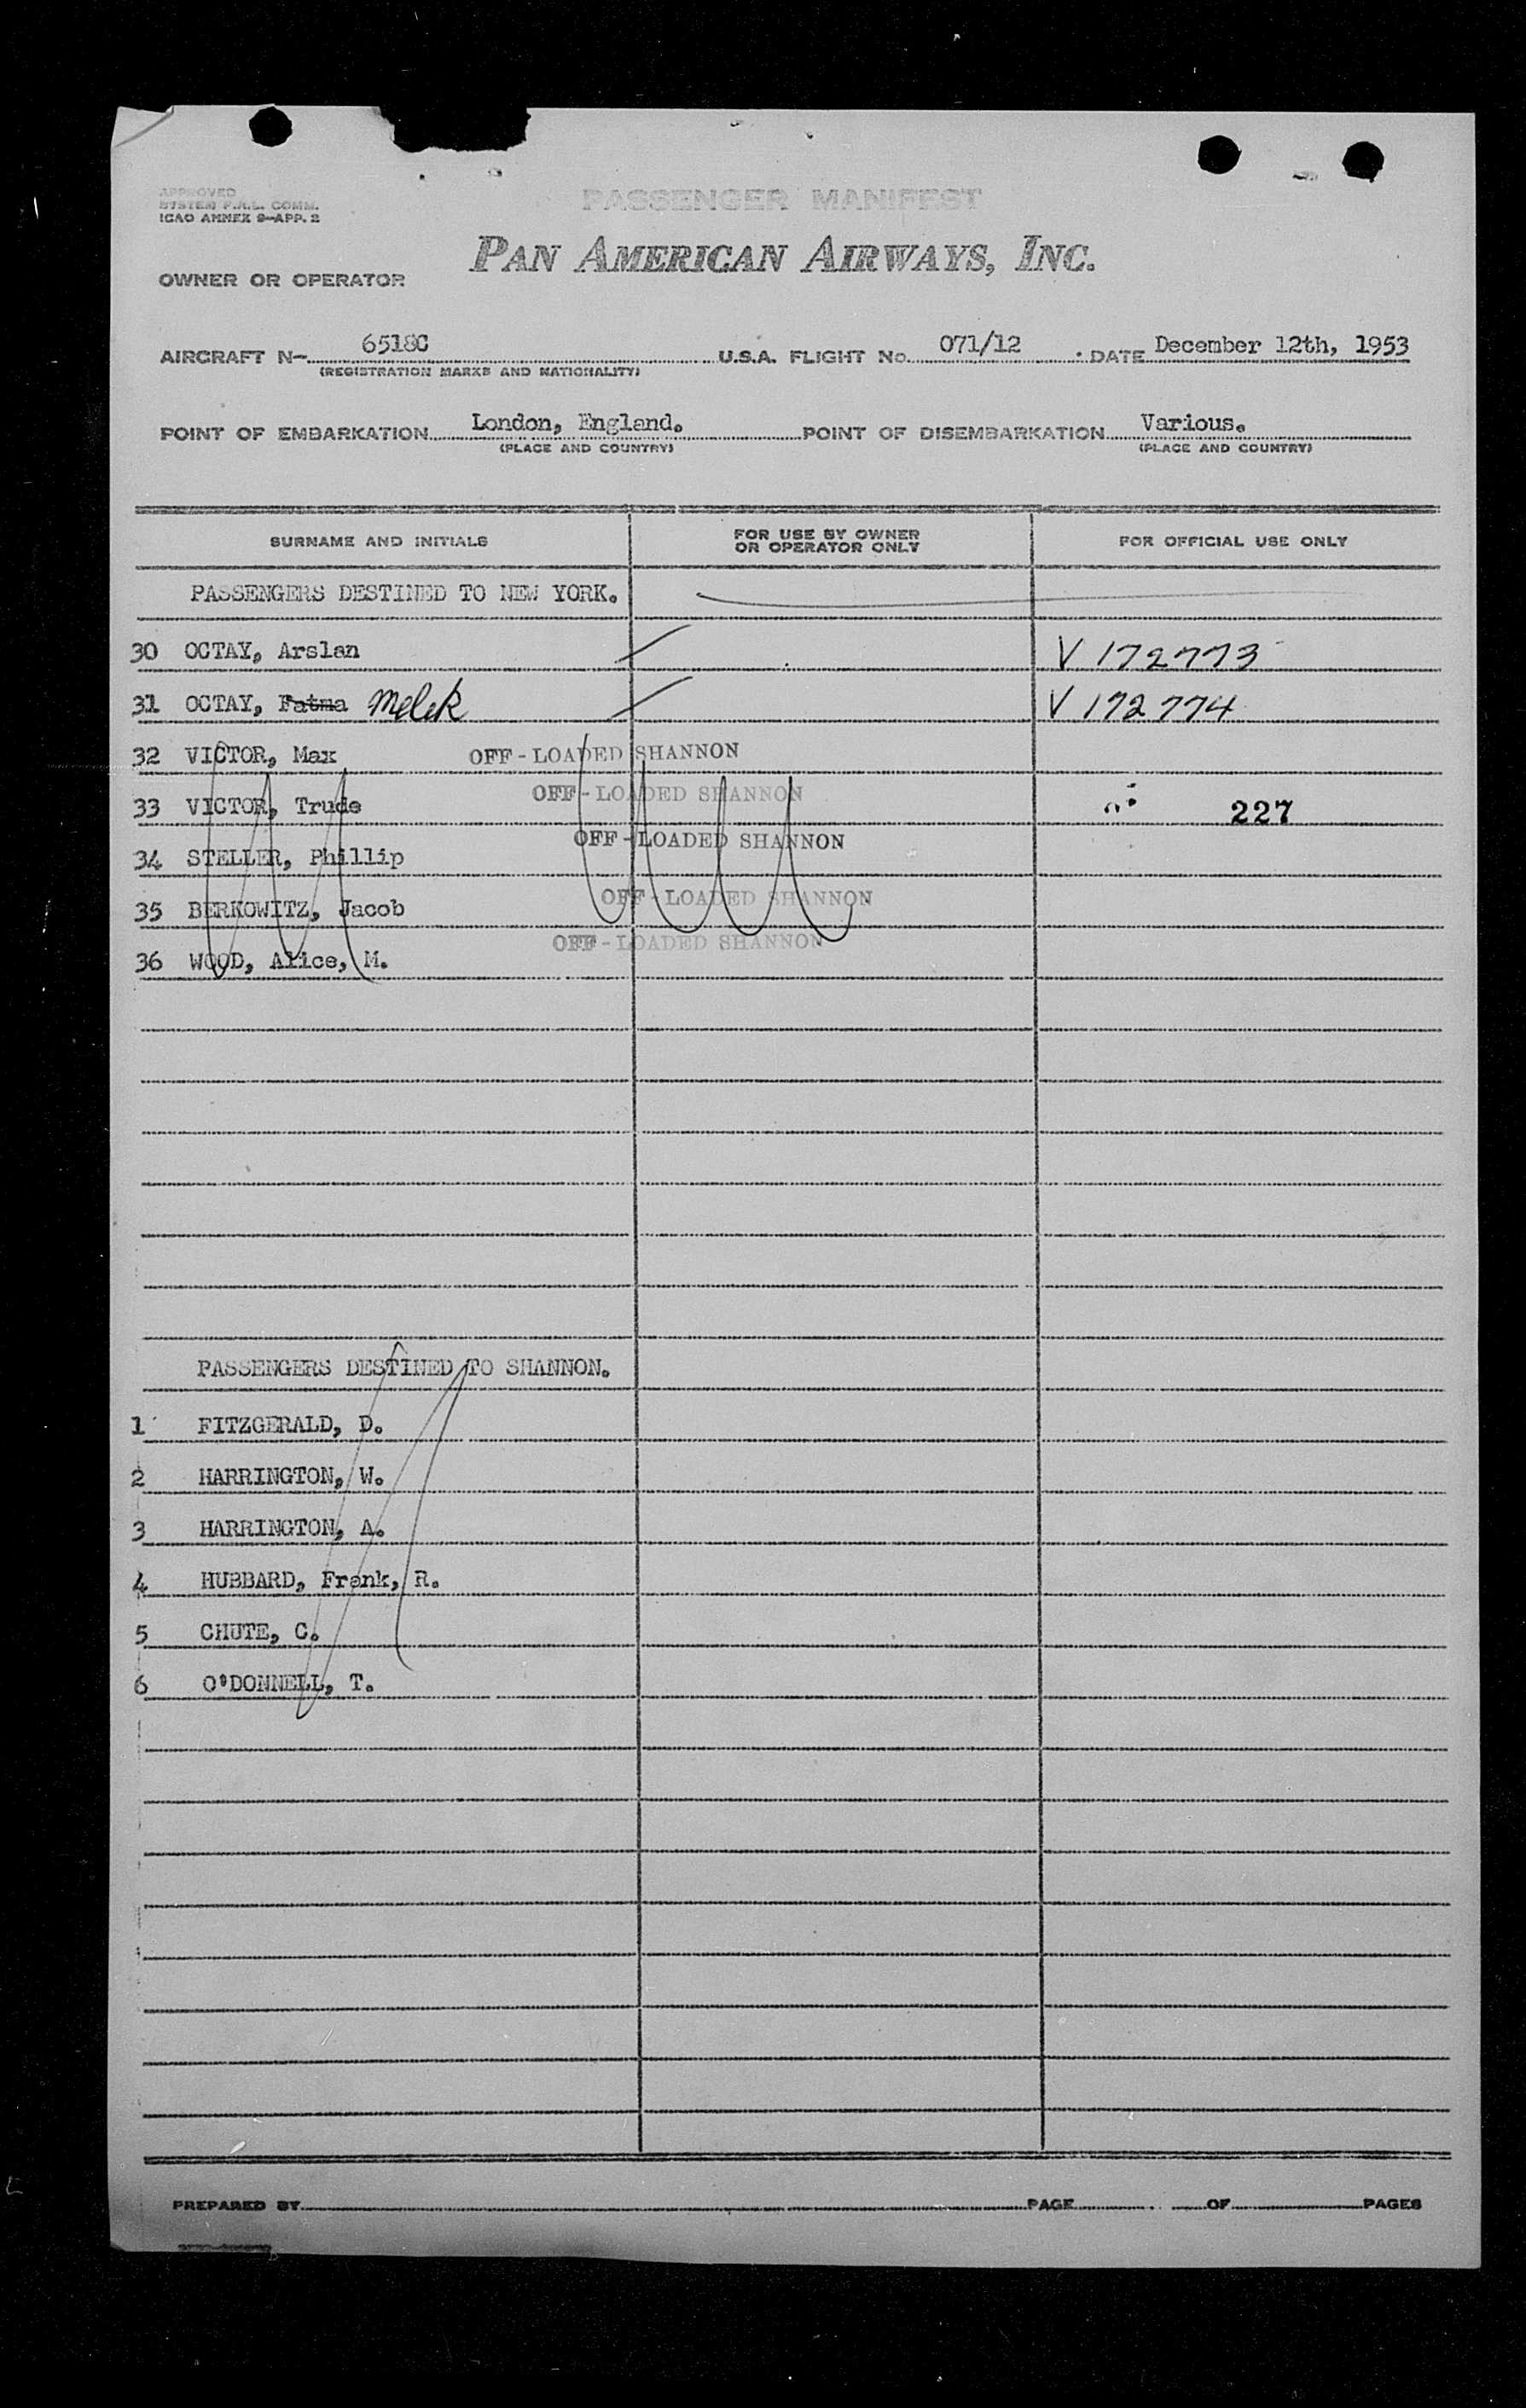 APPROVED
SYSTEM F.A.L. COMM.
ICAO ANNEX 9-APP. 2
PASSENGER MANIFEST
PAN AMERICAN AIRWAYS, INC.
OWNER OR OPERATOR
AIRCRAFT N- 6518C U.S.A. FLIGHT No. 071/12 DATE December 12th, 1953
(REGISTRATION MARKS AND NATIONALITY)
POINT OF EMBARKATION London, England. POINT OF DISEMBARKATION Various.
(PLACE AND COUNTRY) (PLACE AND COUNTRY)
SURNAME AND INITIALS FOR USE BY OWNER OR OPERATOR ONLY FOR OFFICIAL USE ONLY
PASSENGERS DESTINED TO NEW YORK.
30 OCTAY, Arslan V 172773
31 OCTAY, Fatma Melek V 172774
32 VICTOR, Max OFF - LOADED SHANNON
OFF - LOADED SHANNON
33 VICTOR, Trude 227
OFF - LOADED SHANNON
34 STELLER, Phillip
OFF - LOADED SHANNON
35 BERKOWITZ, Jacob
OFF - LOADED SHANNON
36 WOOD, Alice, M.
PASSENGERS DESTINED TO SHANNON.
1 FITZGERALD, D.
2 HARRINGTON, W.
3 HARRINGTON, A.
4 HUBBARD, Frank, R.
5 CHUTE, C.
6 O'DONNELL, T.
PREPARED BY PAGE OF PAGES